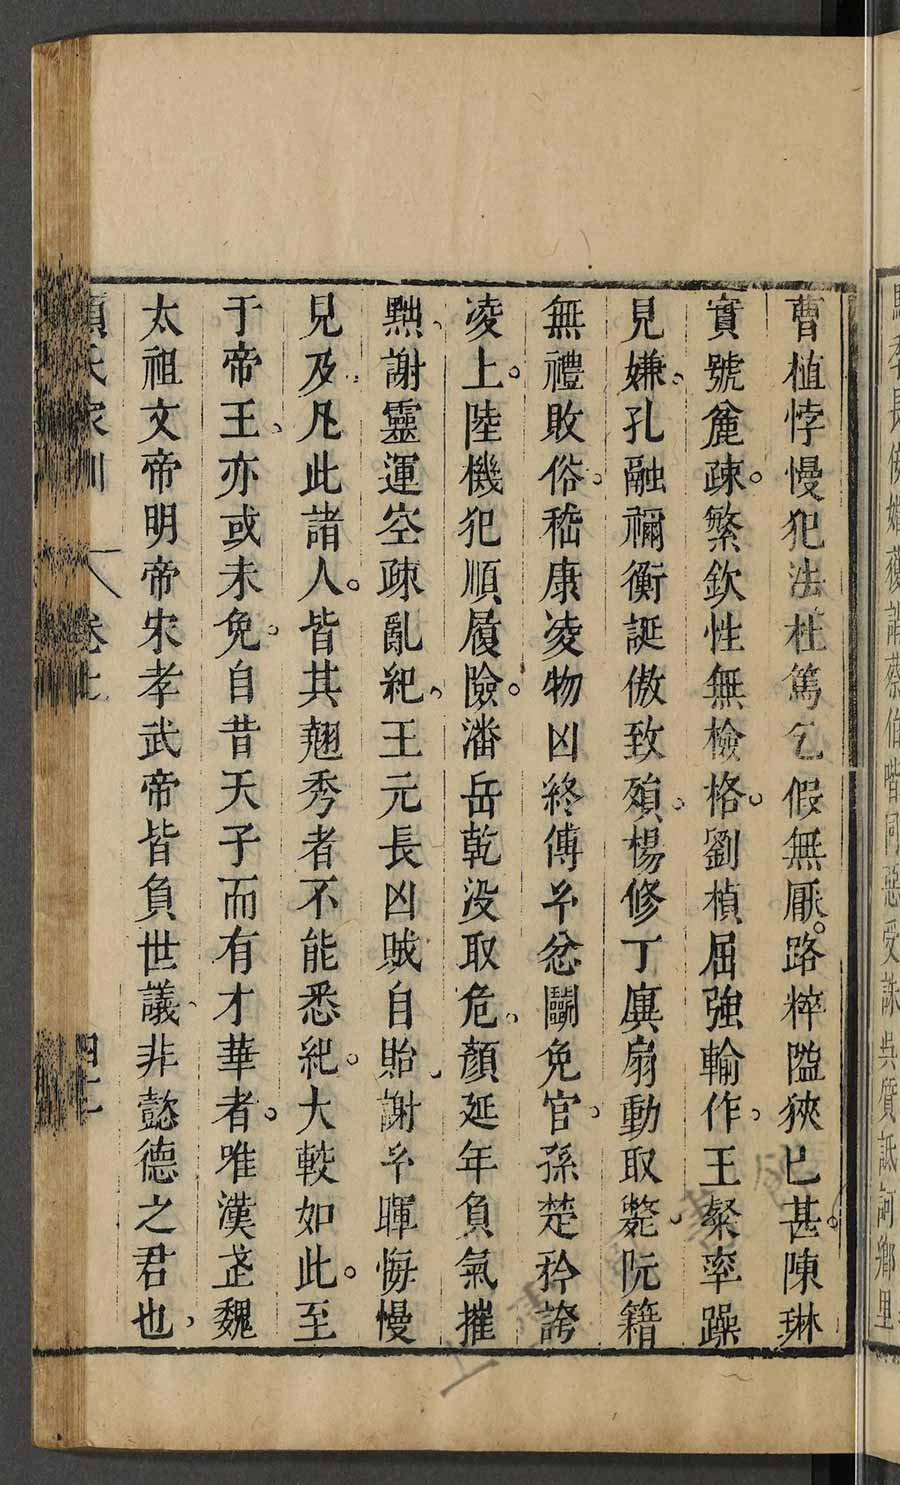 曹植悖慢犯法杜篤乞假無厭路粹隘狹已甚陳琳
實號麄疎繁欽性無檢格劉楨屈強輸作王粲率躁
見嫌孔融禰衡誕傲致殞楊修丁廙扇動取斃阮籍
無禮敗俗嵇康凌物凶終傅玄忿鬬免官孫楚矜誇
凌上陸機犯順履險潘岳乾没取危顏延年負氣摧
黜謝靈運空疎亂紀王元長凶賊自貽謝玄暉侮慢
見及凡此諸人皆其翹秀者不能悉紀大較如此至
于帝王亦或未免自昔天子而有才華者唯漢武魏
太祖文帝明帝宋孝武帝皆負世議非懿德之君也
顏氏家訓 卷上